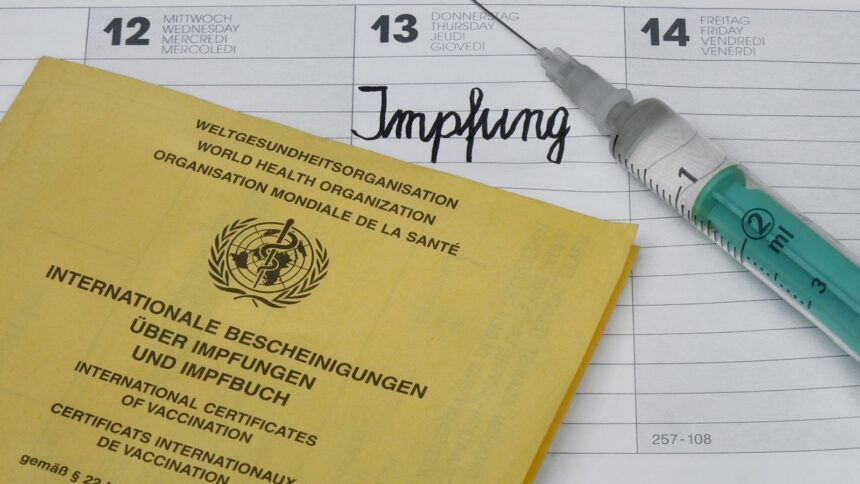 12
MITTWOCH
WEDNESDAY
MERCREDI
MERCOLEDI
13
DONNERSTAG
THURSDAY
JEUDI
GIOVEDI
14
FREITAG
FRIDAY
VENDREDI
VENERDI
Impfung
WELTGESUNDHEITSORGANISATION
WORLD HEALTH ORGANIZATION
ORGANISATION MONDIALE DE LA SANTÉ
INTERNATIONALE BESCHEINIGUNGEN
ÜBER IMPFUNGEN
UND IMPFBUCH
INTERNATIONAL CERTIFICATES
OF VACCINATION
CERTIFICATS INTERNATIONAUX
DE VACCINATION
gemäß § 22
1
2 ml
3
257-108